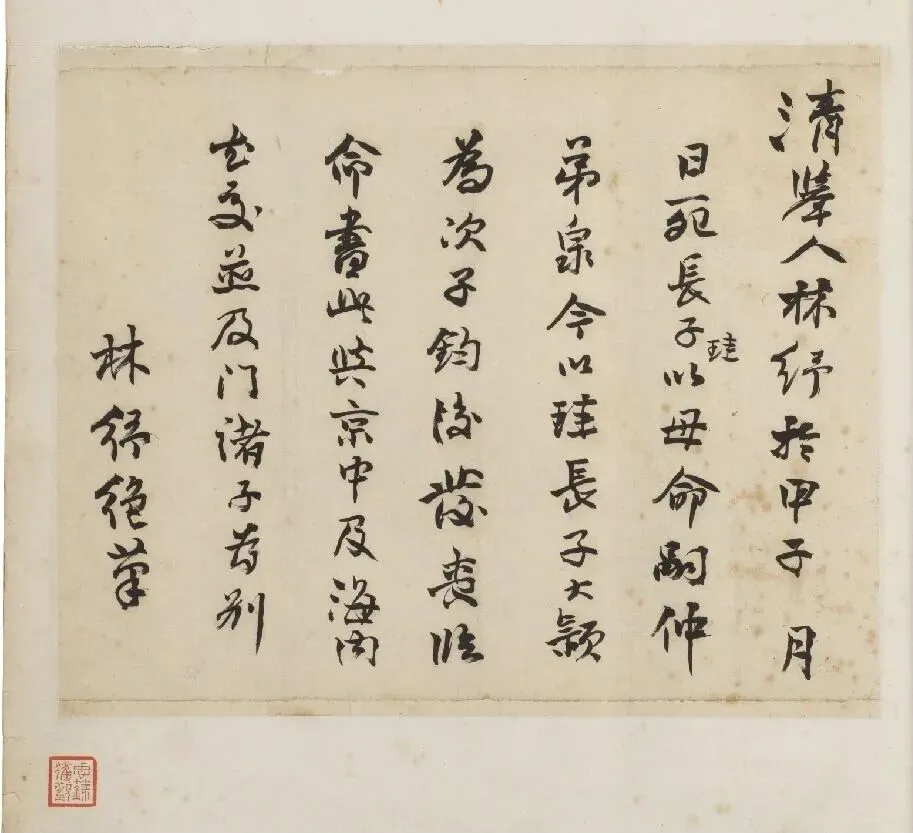 清舉人林紓於甲子 月
日死長子珪以母命嗣仲
弟泉今以珪長子大穎
為次子鈞後發喪臨
命書此與京中及海內
至交並及门諸子為别
林紓絕筆